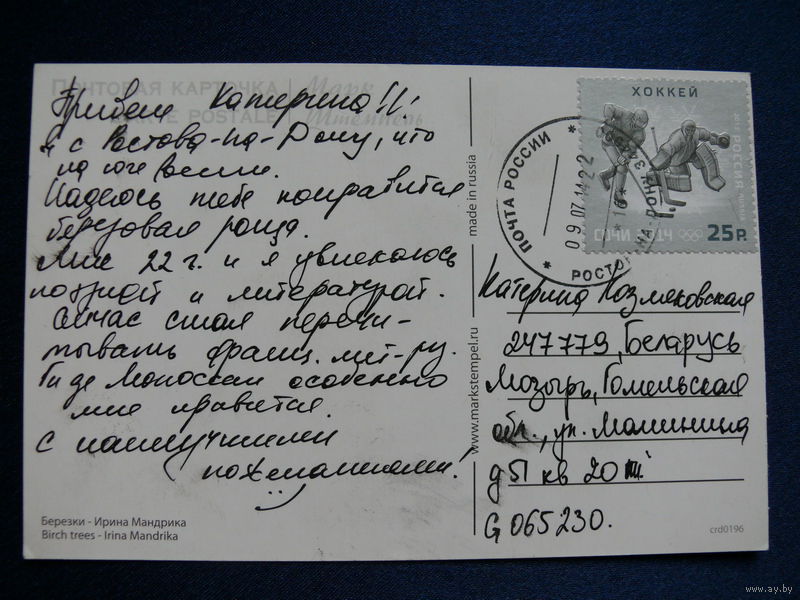 ПОЧТОВАЯ КАРТОЧКА
POSTALE
Марк
Штемпель
Привет Катерина!!!
Я с Ростова-на-Дону, что
на юге
Надеюсь тебе понравится
берёзовая роща.
Мне 22 г. и я увлекаюсь
поэзией и литературой.
Сейчас стал перечи-
тывать франц. лит-ру.
Ги де Мопассан особенно
мне нравится.
С наилучшими
пожеланиями!
Березки - Ирина Мандрика
Birch trees - Irina Mandrika
made in russia
www.markstempel.ru
ХОККЕЙ
РОССИЯ
СОЧИ 2014
25 Р.
* ПОЧТА РОССИИ *
09 07 14 22
РОСТОВ НА ДОНУ
Катерина
247779, Беларусь
Мозырь, Гомельская
обл., ул. Малинина
д 51 кв 20
G 065230.
crd0196
www.ay.by